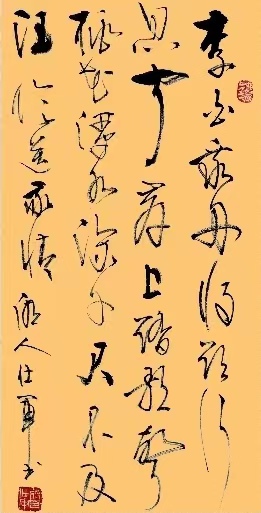 李白乘舟将欲行
忽闻岸上踏歌声
桃花潭水深千尺不及
汪伦送我情 人仕军书